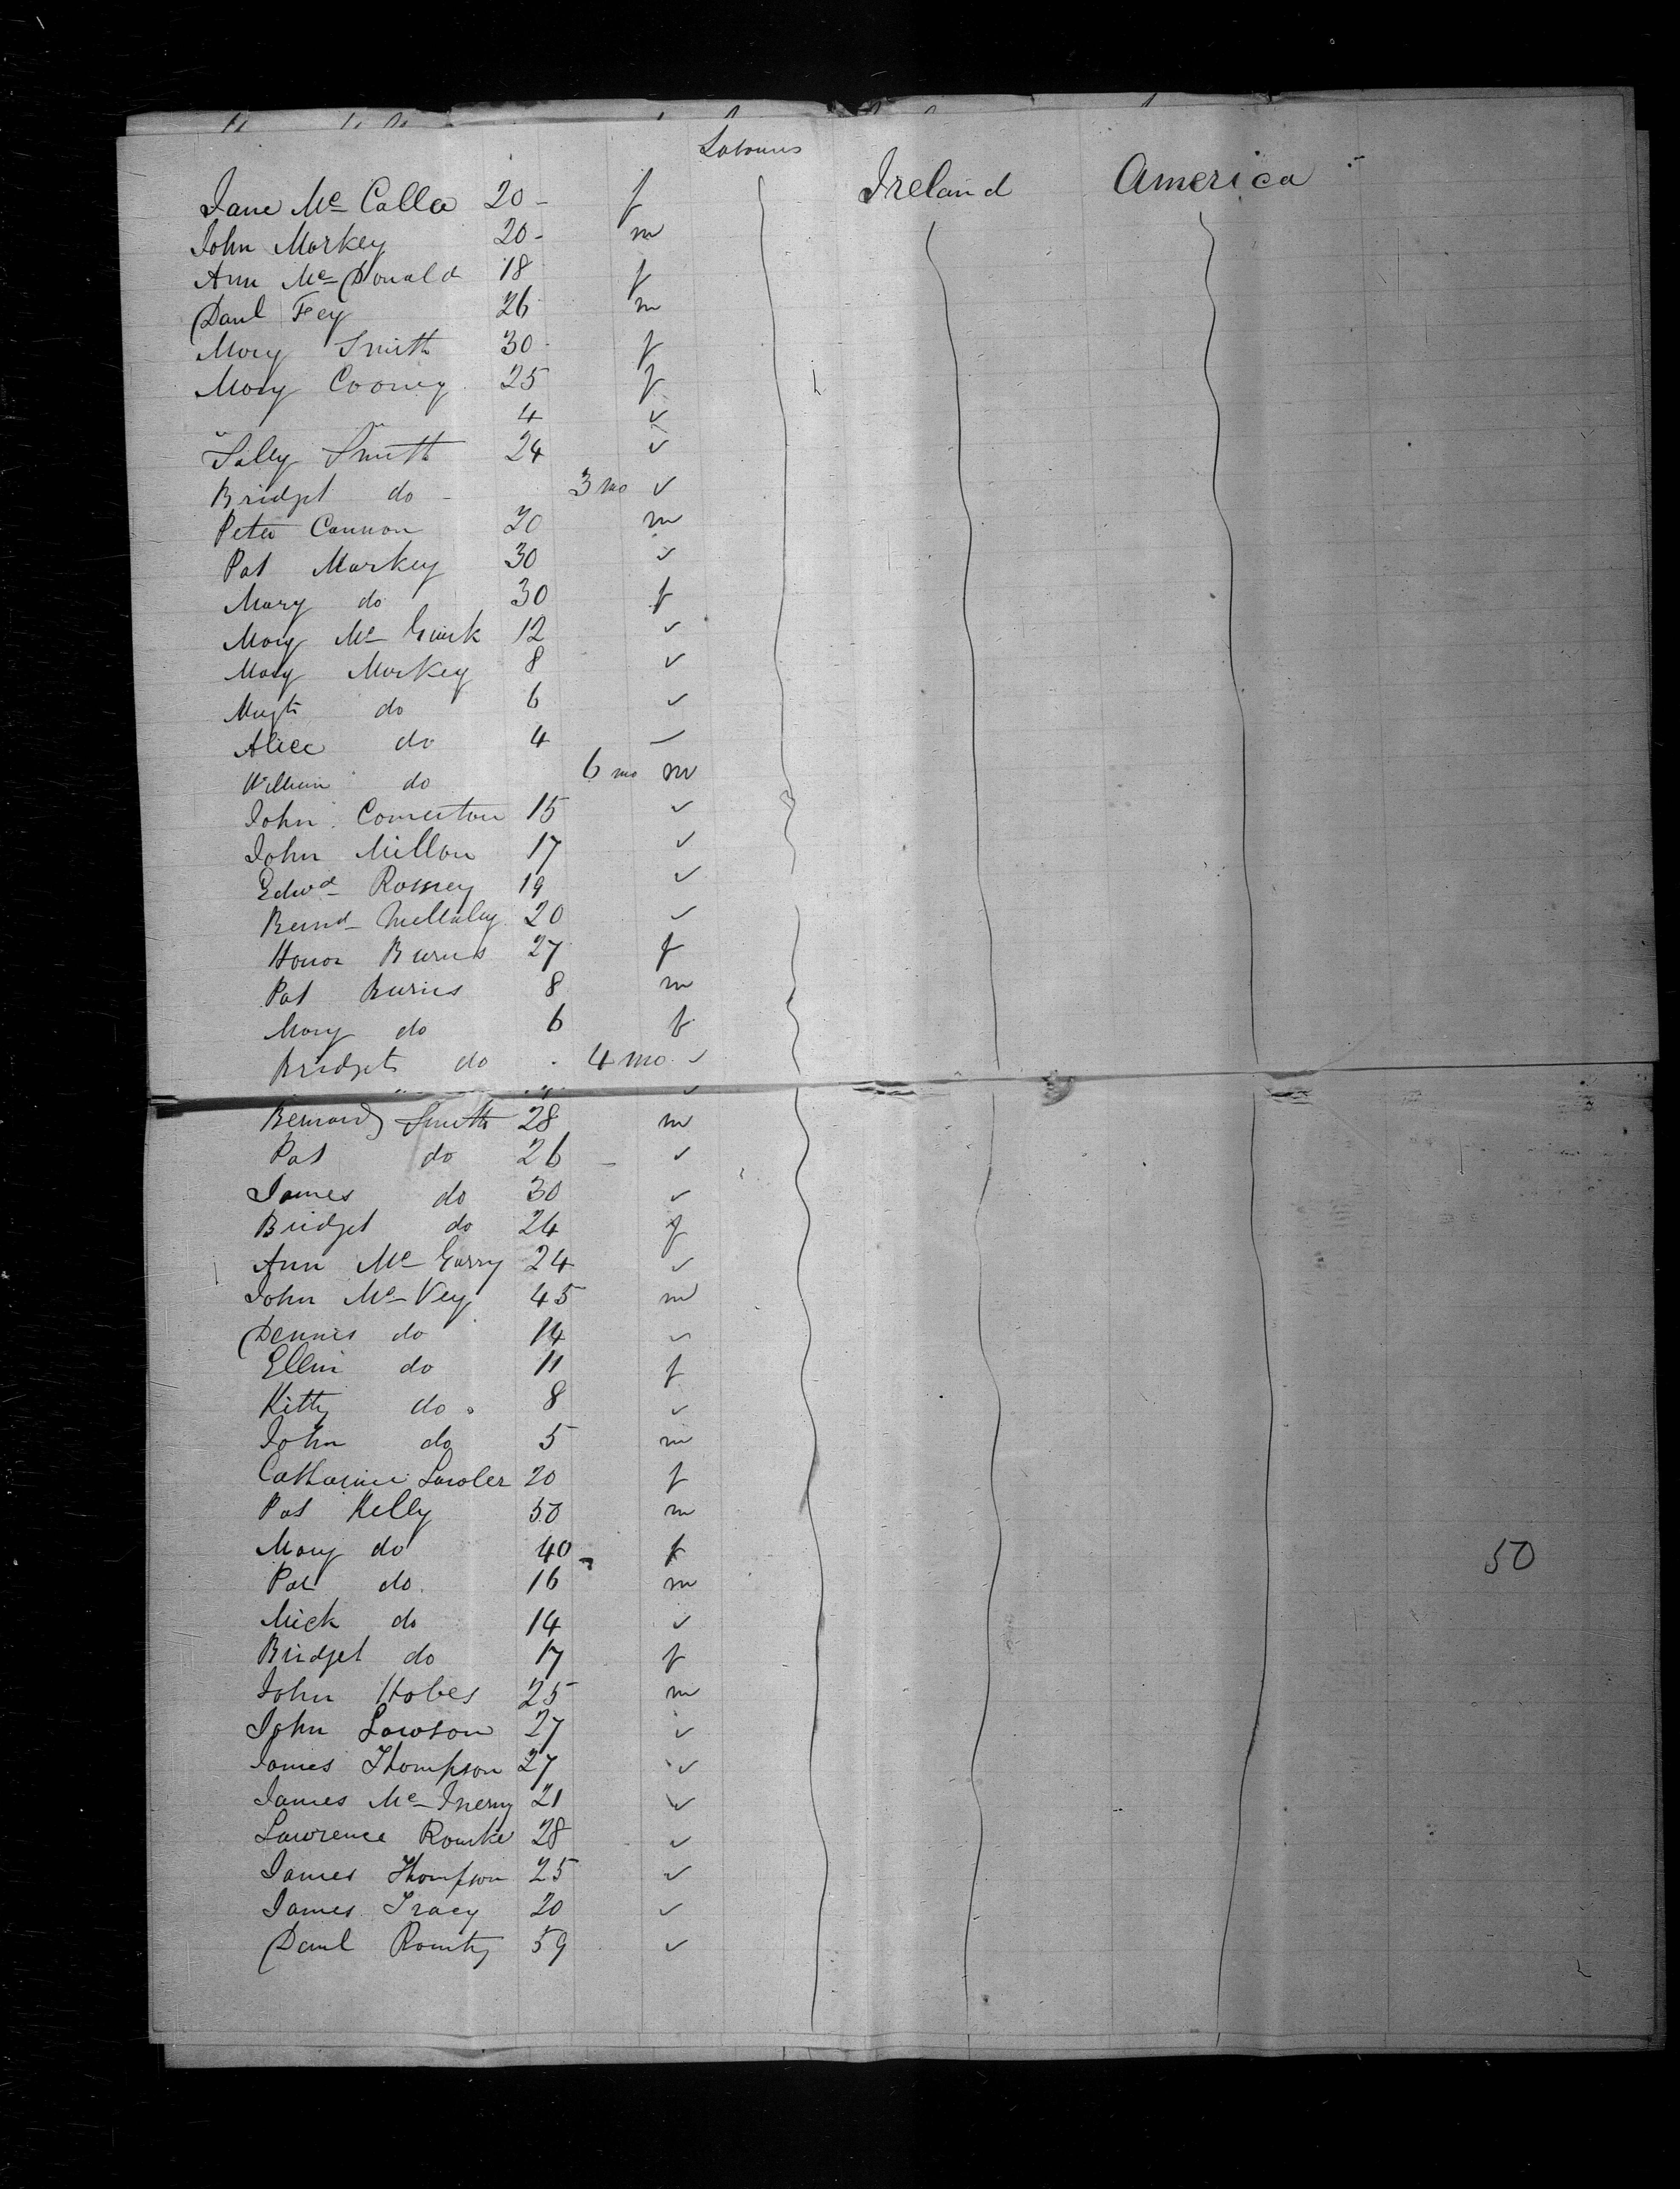 Labourers
Jane Mc Calla 20 - f Ireland America
John Markey 20 - m
Ann Mc Donald 18 f
Danl Fey 26 m
Mary Smith 30 - f
Mary Cooney 25 f
" " 4 ✓
Sally Smith 24 ✓
Bridget do - 3 mo ✓
Peter Cannon 20 m
Pat Markey 30 ✓
Mary do 30 f
Mary Mc Guirk 12 ✓
Mary Markey 8 ✓
Magt do 6 ✓
Alice do 4 ✓
William do 6 mo m
John Comerton 15 ✓
John Millon 17 ✓
Edwd 19 ✓
Bernd 20 ✓
Honor Burns 27 f
Pat Burns 8 m
Mary do 6 f
Bridget do 4 mo ✓
Bernard Smith 28 m
Pat do 26 ✓
James do 30 ✓
Bridget do 24 f
Ann Mc Garry 24 ✓
John Mc Vey 45 m
Dennis do 14 ✓
Ellin do 11 f
Kitty do 8 ✓
John do 5 m
Catharine Lawler 20 f
Pat Kelly 50 m
Mary do 40 f 50
Pat do 16 m
Mick do 14 ✓
Bridget do 17 f
John Hobes 25 m
John Lawson 27 ✓
James Thompson 27 ✓
James Mc Inerny 21 ✓
Lawrence Rourke 28 ✓
James Thompson 25 ✓
James Tracy 20 ✓
Danl 59 ✓